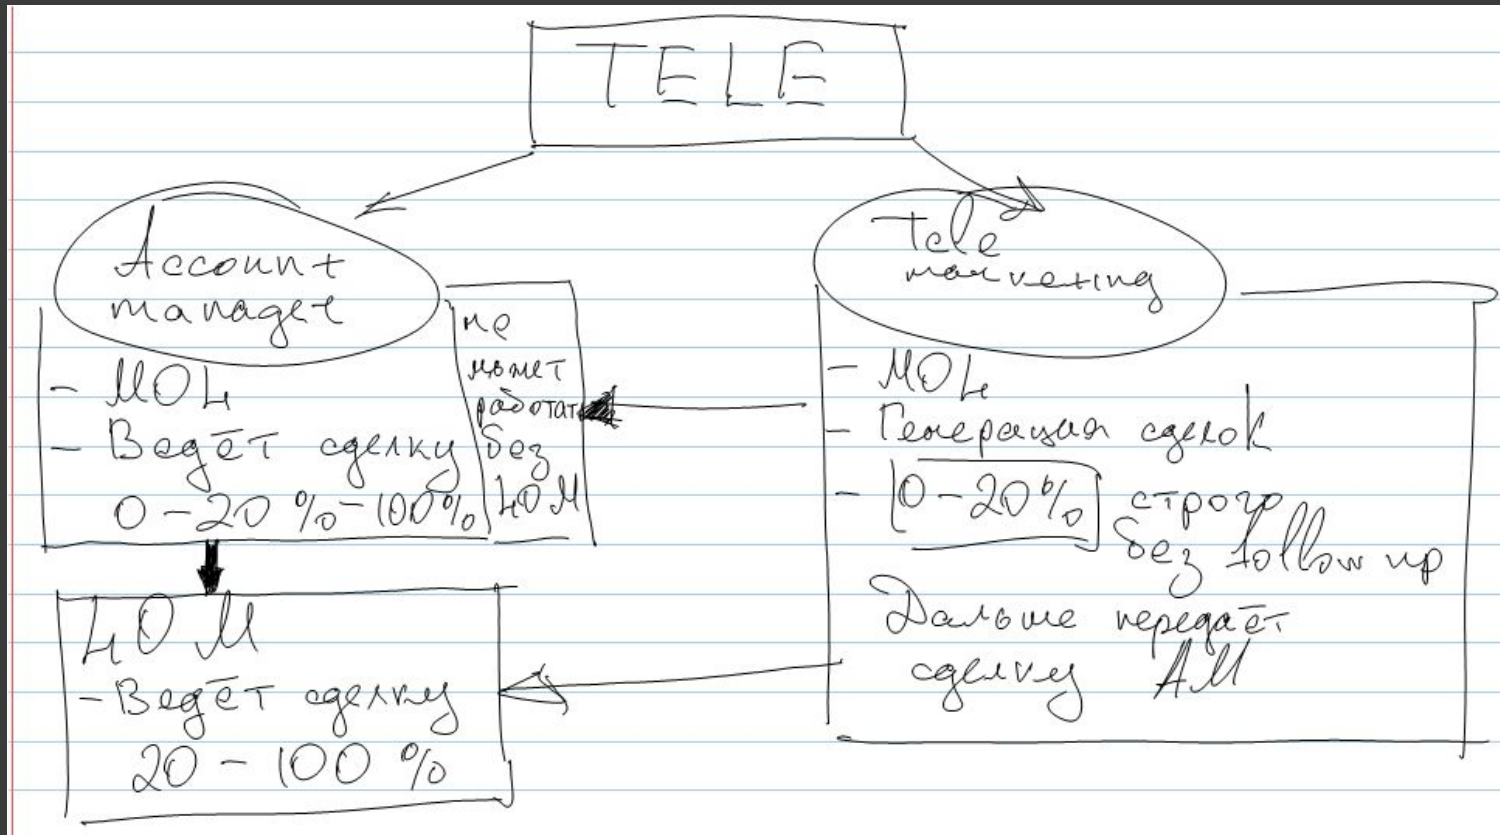 TELE
Account
manager
- МОЦ
- Ведёт сделку
0-20%-100%
не
может
работать
без
ЦОМ
ЦОМ
- Ведёт сделку
20-100%
Tele
marketing
- МОЦ
- Генерация сделок
- 0-20% строго
без follow up
Дальше передаёт
сделку АМ